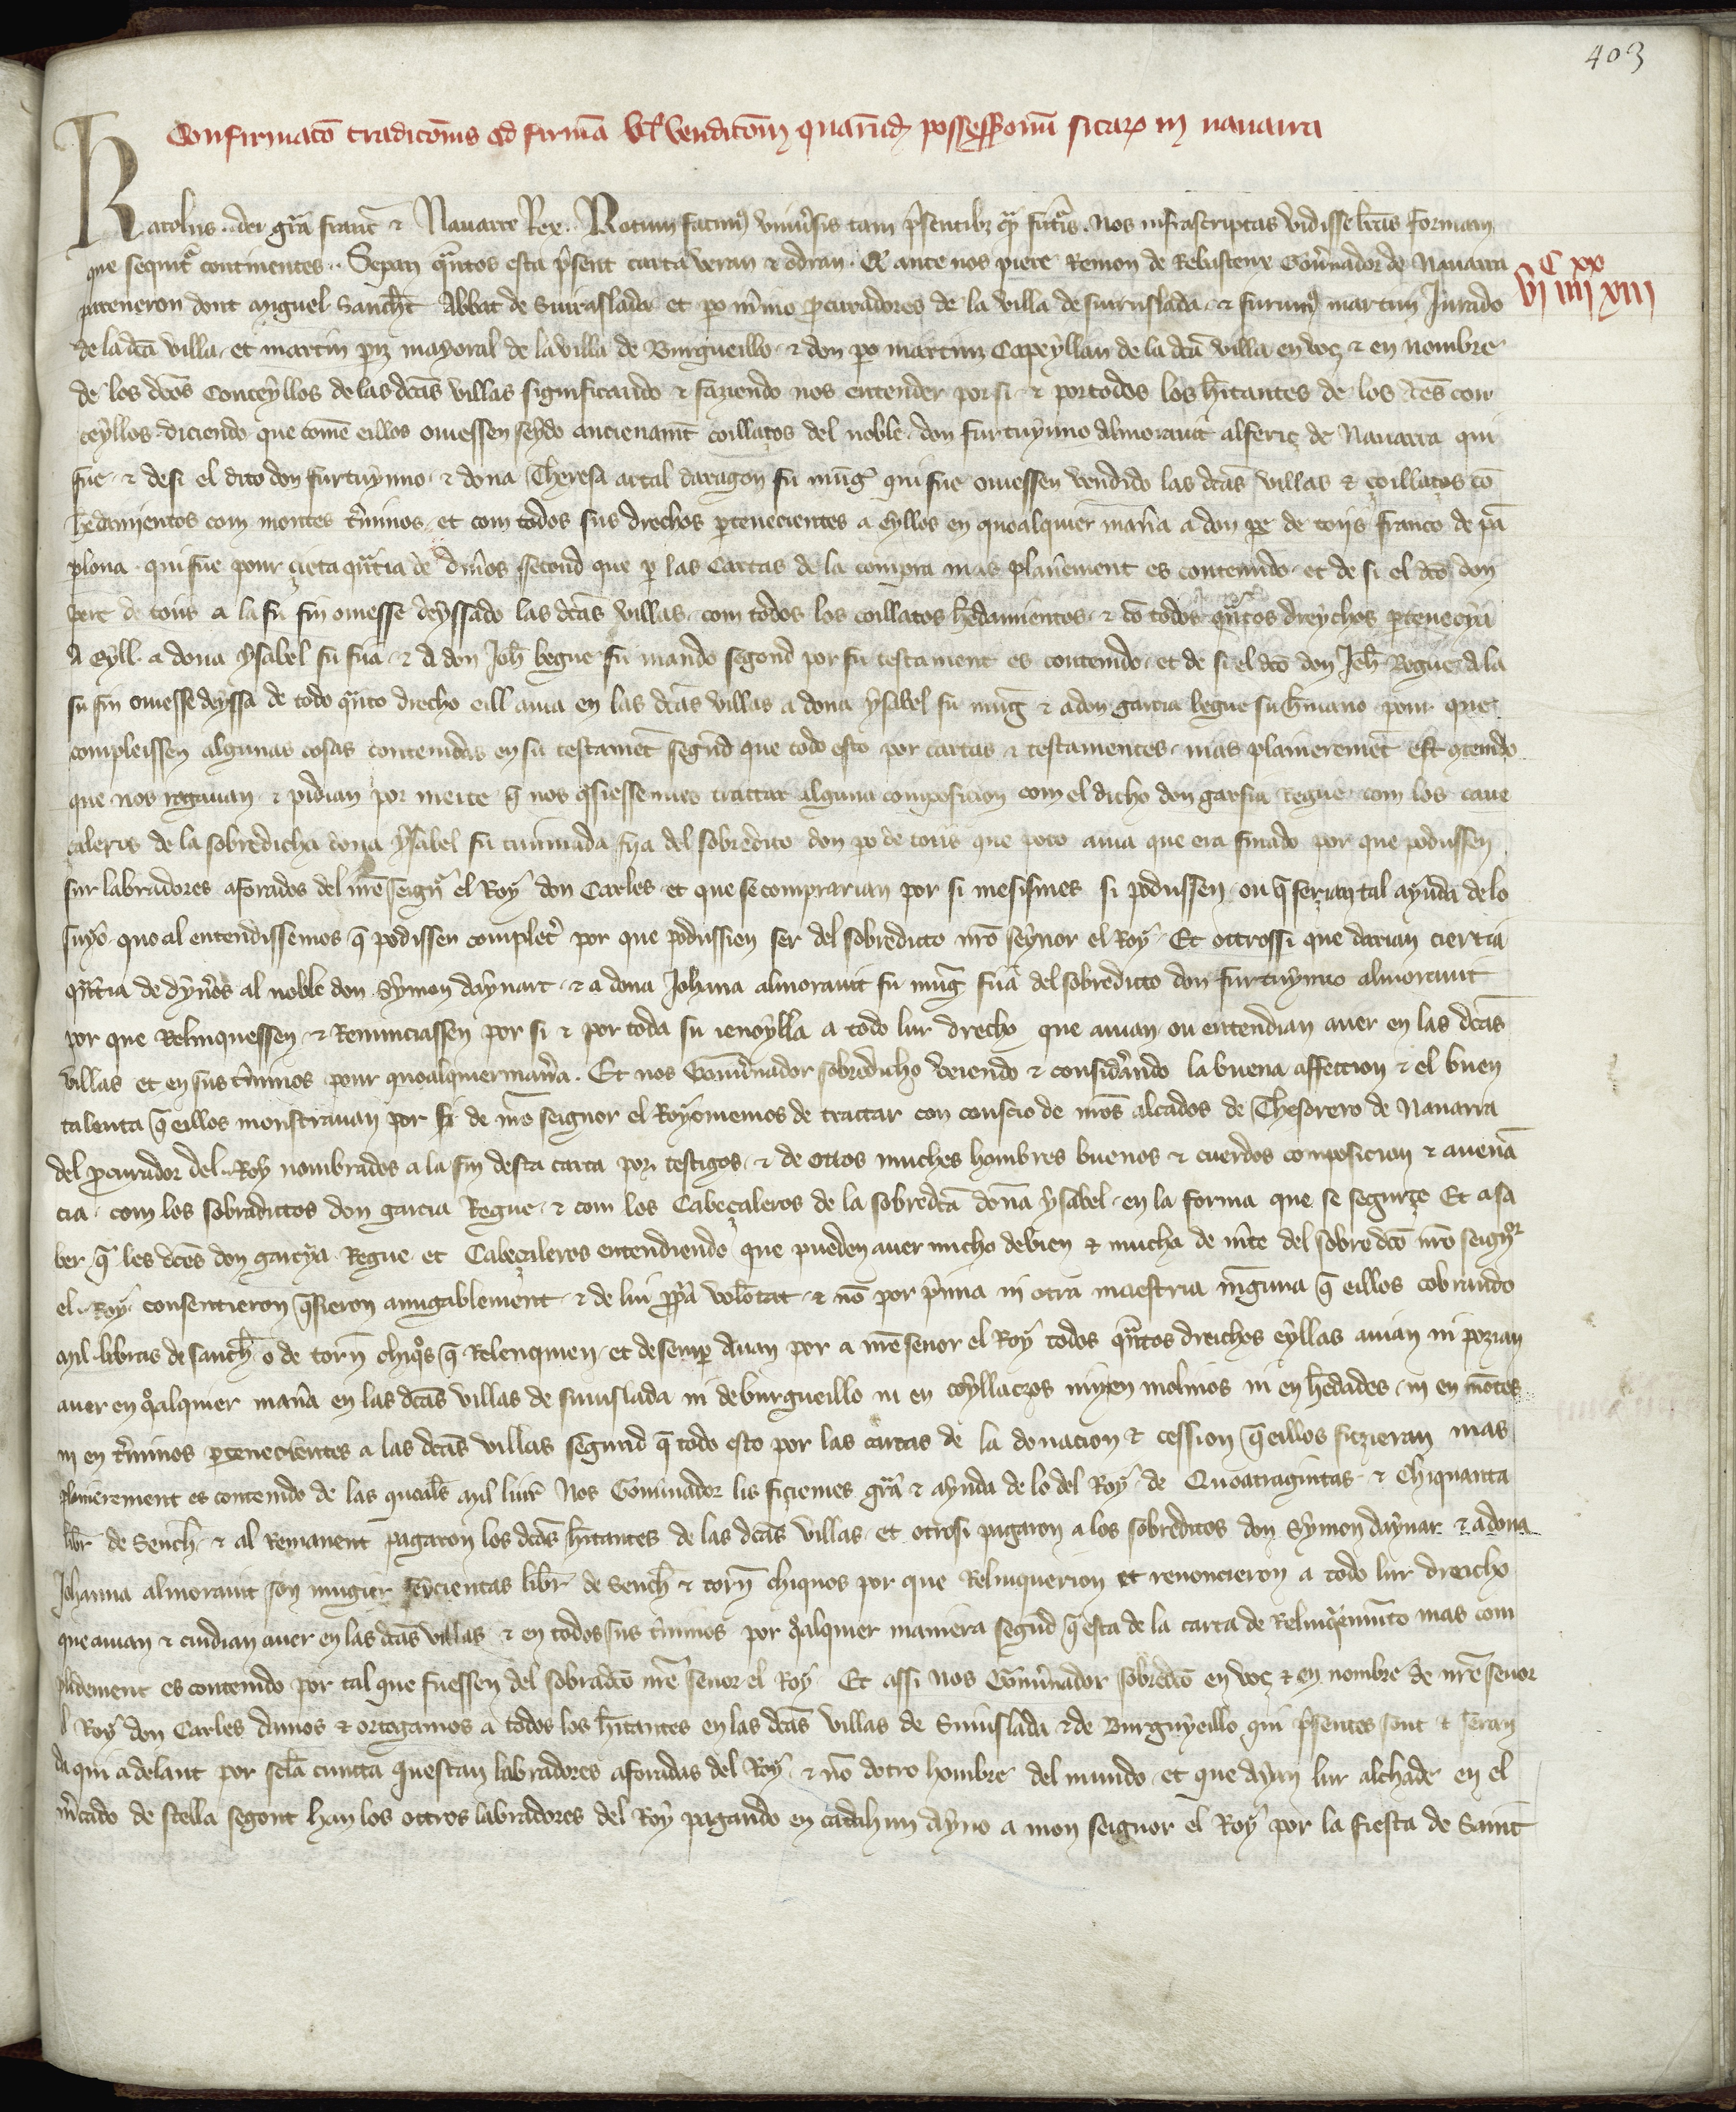 403
Confirmatō traditōnis ad firmā vl' venditōnis quarūdē possessionū sitarʒ in nauarra
Karolus dei grā franc̄ ⁊ Nauarre Rex. Notum facimꝰ vniuersis tam p̄sentibʒ qm̄ futuris. Nos infrascriptas vidisse lr̄as formam
C xx
vi iiii xiii
que sequit̄ continentes. Sepan qn̄tos esta p̄sent carta veran ⁊ odran. Qe ante nos piere Remon de Rabastenx Goūnador de Nauarra
pareneron dont miguel Sanch̄t Abbat de Suruslada et po m̄ino ꝓcuradores de la villa de suruslada ⁊ furtunꝰ martin Jurado
de la dcā villa et martin pīz mayoral de la villa de Burgueillo ⁊ don po martiniz Capeyllan de la dcā villa en voç ⁊ en nombre
de los dcōs Conceyllos de las dcās villas significando ⁊ faziendo nos entender por si ⁊ por todos los hītantes de los dcēs con
ceyllos diciendo que comē eillos ouessen seydo ancienamt̄ coillaços del noble don furtuynno almorauit alferiç de Nauarra qui
fue ⁊ desi el dito don furtuynno ⁊ dona Theresa artal daragon su muḡ qui fue ouessen vendido las dcās villas ⁊ coillaços cō
h̄edamientos com montes t̄minos et com todos sus drechos ꝑtenecientes a eyllos en quoalquier man̄a a don pe de toris franco de pā
plona qui fue pour çieta qn̄tia de din̄os second que ꝑ las Cartas de la compra mas planēment es contenudo et de si el dcō don
pere de toris a la su fin ouesse deyssado las dcās villas com todos los coillatos h̄edamientos ⁊ cō todos qn̄tos dreychos ꝑtenecyā
a Eyll a dona ysabel su fiia ⁊ a don Joh̄ begue su marido segond por su testament es contenido et de si el dcō don Joh̄ Begue a la
su fin ouesse deyssa de todo qn̄to drecho eill auia en las dcās villas a dona ysabel su muḡ ⁊ a don garcia begue su h̄mano pour que
compleissen algunas cosas contenidas en su testamēt segūd que todo esto por cartas ⁊ testamentes mas plaineremēt est ꝯtenido
que nos rogauan ⁊ pidian por merce q̄ nos q̄siessemus trattar alguna composicion com el dicho don garsia Regue com los caue
caleros de la sobredicha dona ysabel su cuinnada fija del sobredito don po de toris que poco auia que era finado por que podiessen
sur labradores aforados del nr̄e seign̄r el Roy don Carles et que se comprarian por si mesismes si podiussen ou q̄ ferian tal ayuda de lo
suyo quoal entendissemos q̄ podissen complet̄ por que podiussien ser del sobreditto nrō seynor el Roy Et ottrossi que darian ciertia
qn̄tia de dyn̄es al noble don Symon daynart ⁊ a dona Johana almorauit su muḡ fiiā del sobreditto don furtuynno almorauit
por que Relinquessen ⁊ Renunciassen por si ⁊ por toda su ienoylla a todo lur drecho que auian ou entendian auer en las dcās
villas et en sus t̄minos pour quoalquier man̄a. Et nos Goūnador sobredicho veiendo ⁊ considrando la buena affection ⁊ el buen
talenta q̄ eillos monstrauan por si de nr̄o seignor el Roy ouiemos de trattar con conscio de nrōs alcados de Thesorero de Nauarra
del ꝓcurador del Roy nombrados a la fin desta carta por testigos ⁊ de otros muches hombres buenos ⁊ cuerdos composicion ⁊ auenā
cia com los sobradittos don garcia Regue ⁊ com los Cabeçaleros de la sobredcā donā ysabel en la forma que se segurçe Et a sa
ber q̄ les dcēs don garcya Regue et Cabeçaleros entendiendo que pueden auer micho debien ⁊ mucha de m̄ce del sobredcō nr̄o seign̄r
el Roy consentieron q̄sieron amigablement ⁊ de lui ꝓpā volōtat ⁊ nō por p̄mia ni otra maestria ninguna q̄ eillos cobrando
mil libras de sanch̄ o de torn̄ chiqōs q̄ Relenquien et desemp̄auan por a nr̄e senor el Roy todos qn̄tos dreichos eyllas auian ni pozian
auer en q̄alquier man̄a en las dcās villas de suruslada ni de burgueillo ni en coyllacros ni en molinos ni en h̄edades ni en mōtes
ni en t̄minos ꝑtenecientes a las dcās villas segund q̄ todo esto por las cartas de la donation ⁊ cession q̄ eillos fizieran mas
plainierement es contenido de las quoal̄s mil liūr Nos Goūnador lis fiçiemes grā ⁊ ayuda de lo del Roy de Quoatragintas ⁊ chiquanta
libr̄ de Sench̄ ⁊ al Remanent pagaron los dcōs hītantes de las dcās villas et otrosi pagaron a los sobreditos don Symon daynar ⁊ a dona
Johanna almorauit son mugier seycientas libr̄ de Sench̄ ⁊ torn̄ chiquos por que Relinquerion et renoncieron a todo lur dreicho
que auian ⁊ cuidian auer en las dcās villas ⁊ en todos sus t̄minos por q̄alquier maniera segūd q̄ esta de la carta de Relinq̄imiēto mas com
plidement es contenido por tal que fuessen del sobradcō nr̄e senor el Roy Et assi nos Goūnador sobredcō en voç ⁊ en nombre de nr̄e senor
el Roy don Carles damos ⁊ ortogamos a todos los hītantes en las dcās villas de Suruslada ⁊ de Burguyeillo qui p̄sentes sont ⁊ seran
daqui adelant por sclā cuncta questan labradores aforadas del Roy ⁊ nō dotro hombre del mundo et que ayan lur alchade en el
m̄cado de stella segont han los ottros labradores del Roy pagando en cadahun ayno a mon seignor el Roy por la fiesta de Saint